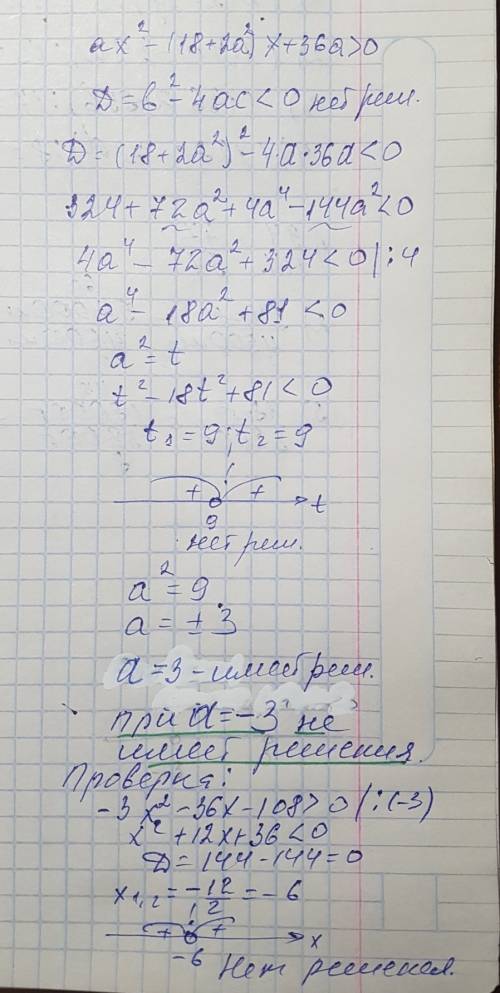 ax² - (18+2a²)x+36a>0
D=b²-4ac<0 нет реш.
D=(18+2a²)²-4·a·36a<0
324+72a²+4a⁴-144a²<0
4a⁴-72a²+324<0 |:4
a⁴-18a²+81<0
a²=t
t²-18t²+81<0
t₁=9; t₂=9
+ + t
9
нет реш.
a²=9
a=±3
a=3-имеет реш.
при a=-3 не
имеет решения.
Проверка:
-3x²-36x-108>0 |:(-3)
x²+12x+36<0
D=144-144=0
x₁,₂=-12/2=-6
+ + x
-6 Нет решения.